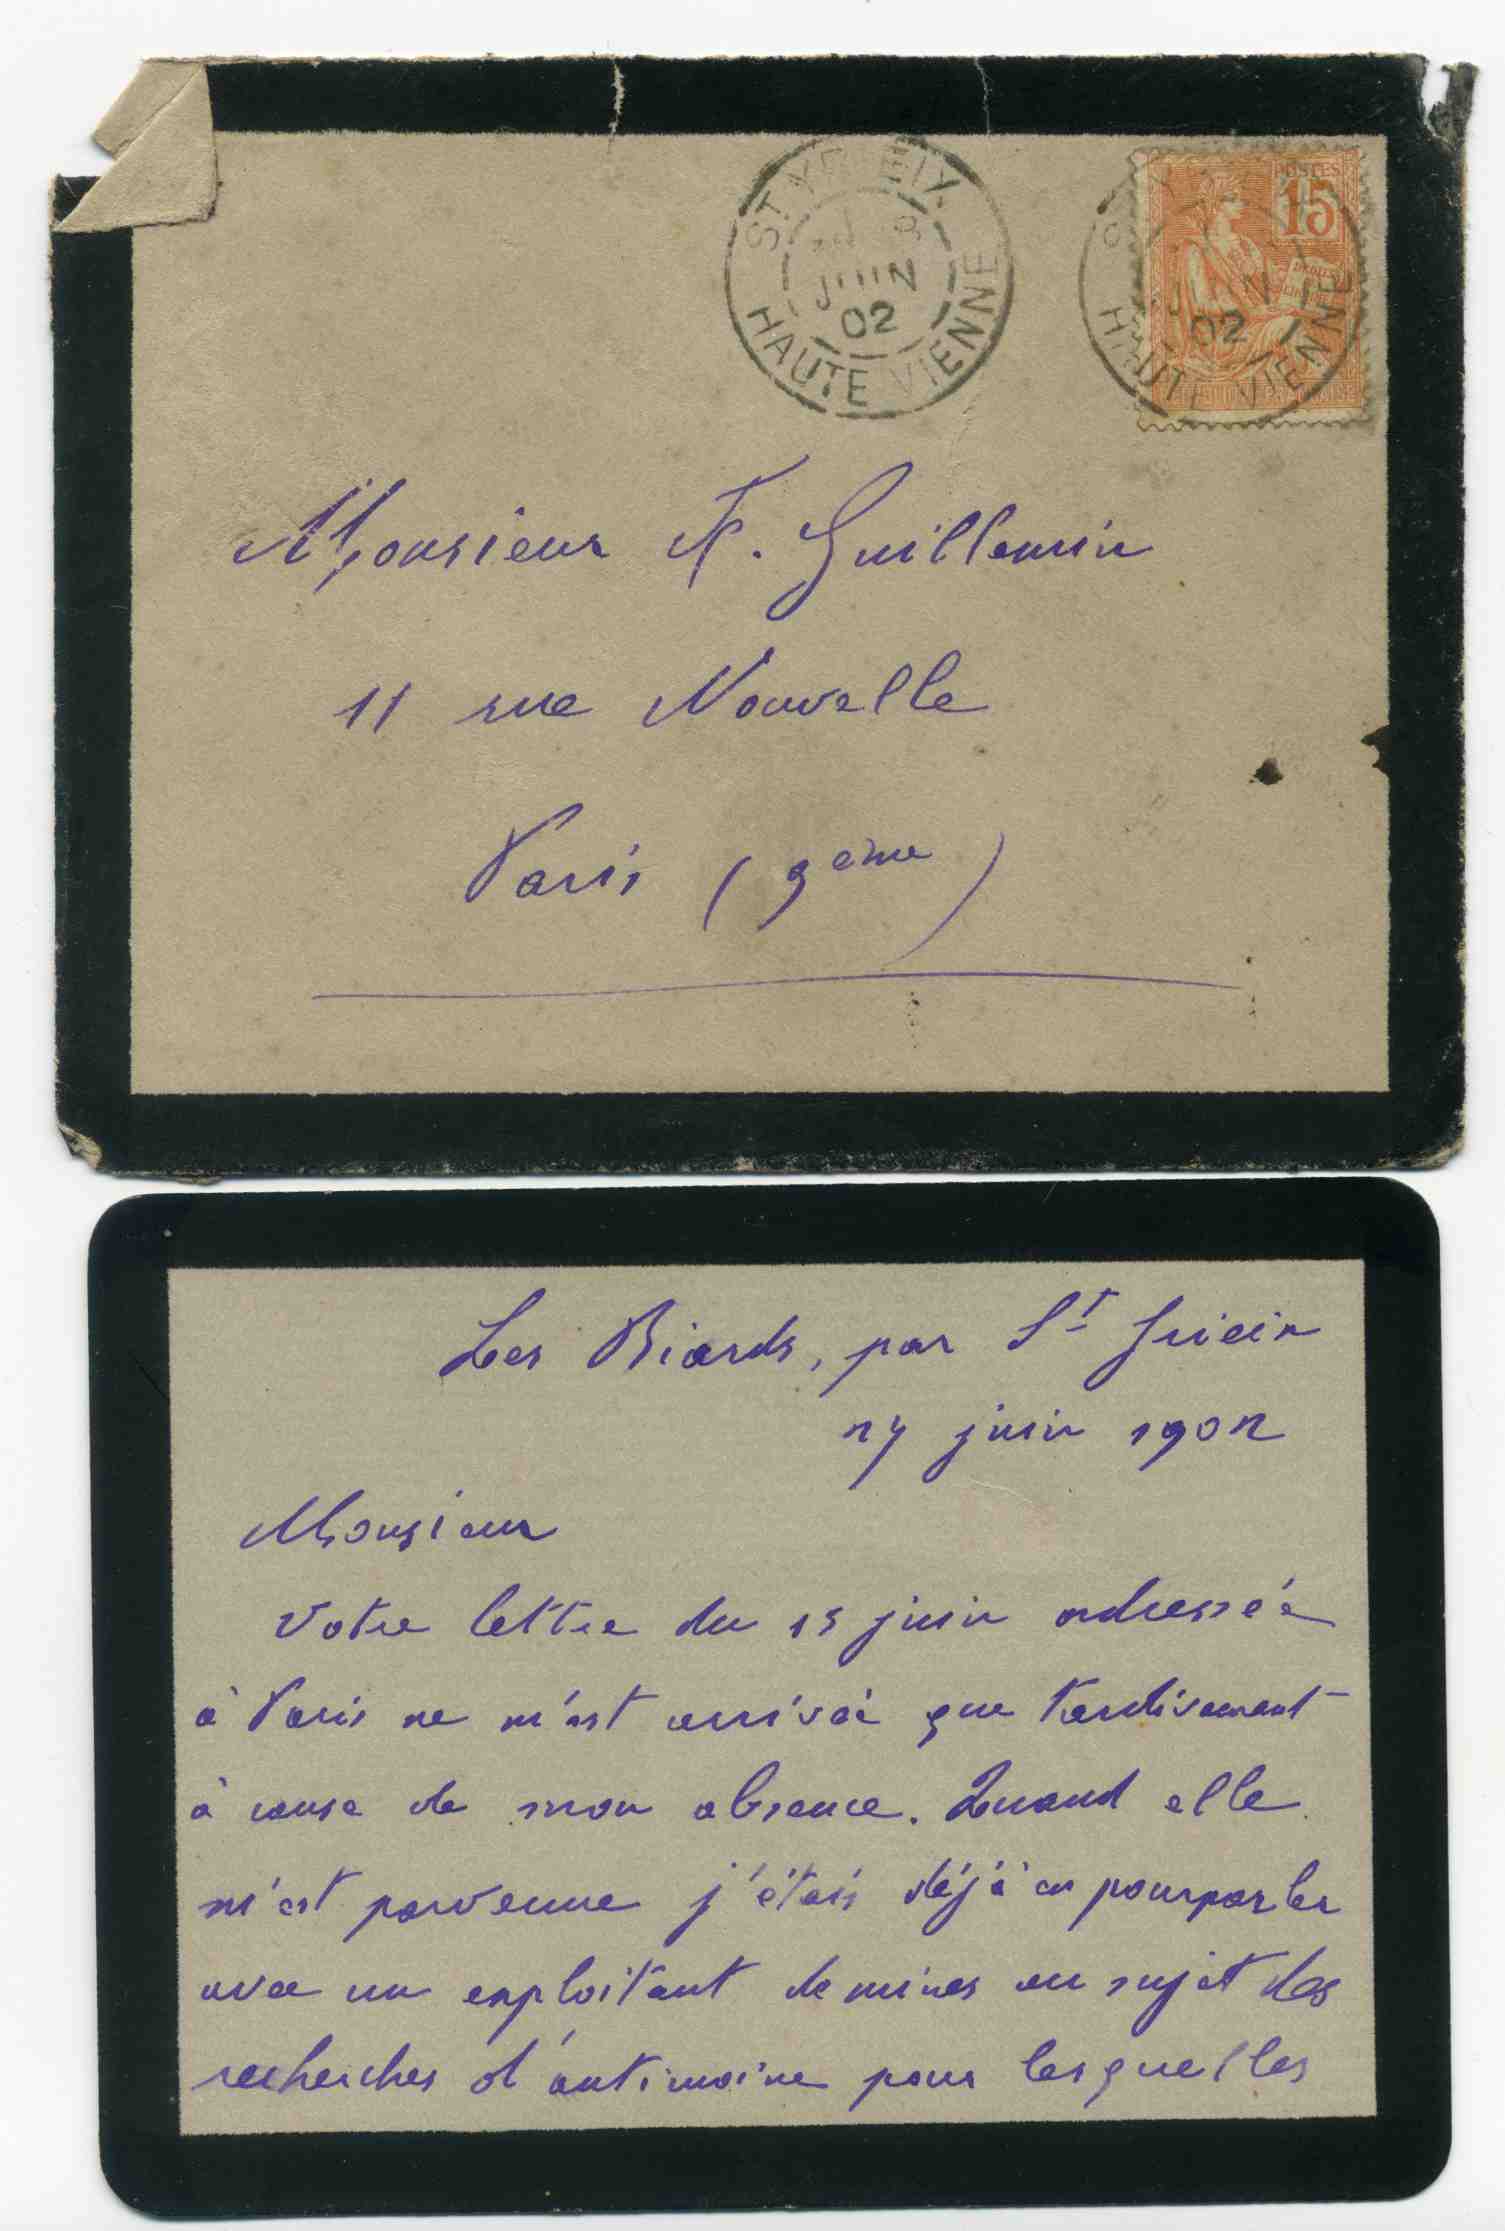 ST YRIEIX
JUIN
02
HAUTE VIENNE
POSTES
15
JUIN
02
HAUTE VIENNE
Monsieur F. Guillemin
11 rue Nouvelle
Paris (9eme)
Les Biards, par St Yrieix
27 juin 1902
Monsieur
Votre lettre du 15 juin adressée
à Paris ne m'est arrivée que tardivement
à cause de mon absence. Quand elle
m'est parvenue j'étais déjà en pourparler
avec un exploitant de mines au sujet des
recherches d'antimoine pour lesquelles